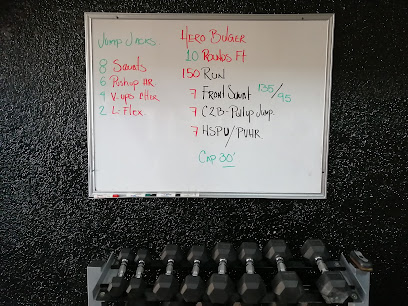 Jump Jacks
8 Squats
6 Pushup HR
4 V-ups
2 L-Flex
Hero Bulger
10 Rounds FT
150 Run
7 Front Squat 135/95
7 C2B-Pullup Jump
7 HSPU/PUHR
Cap 30'